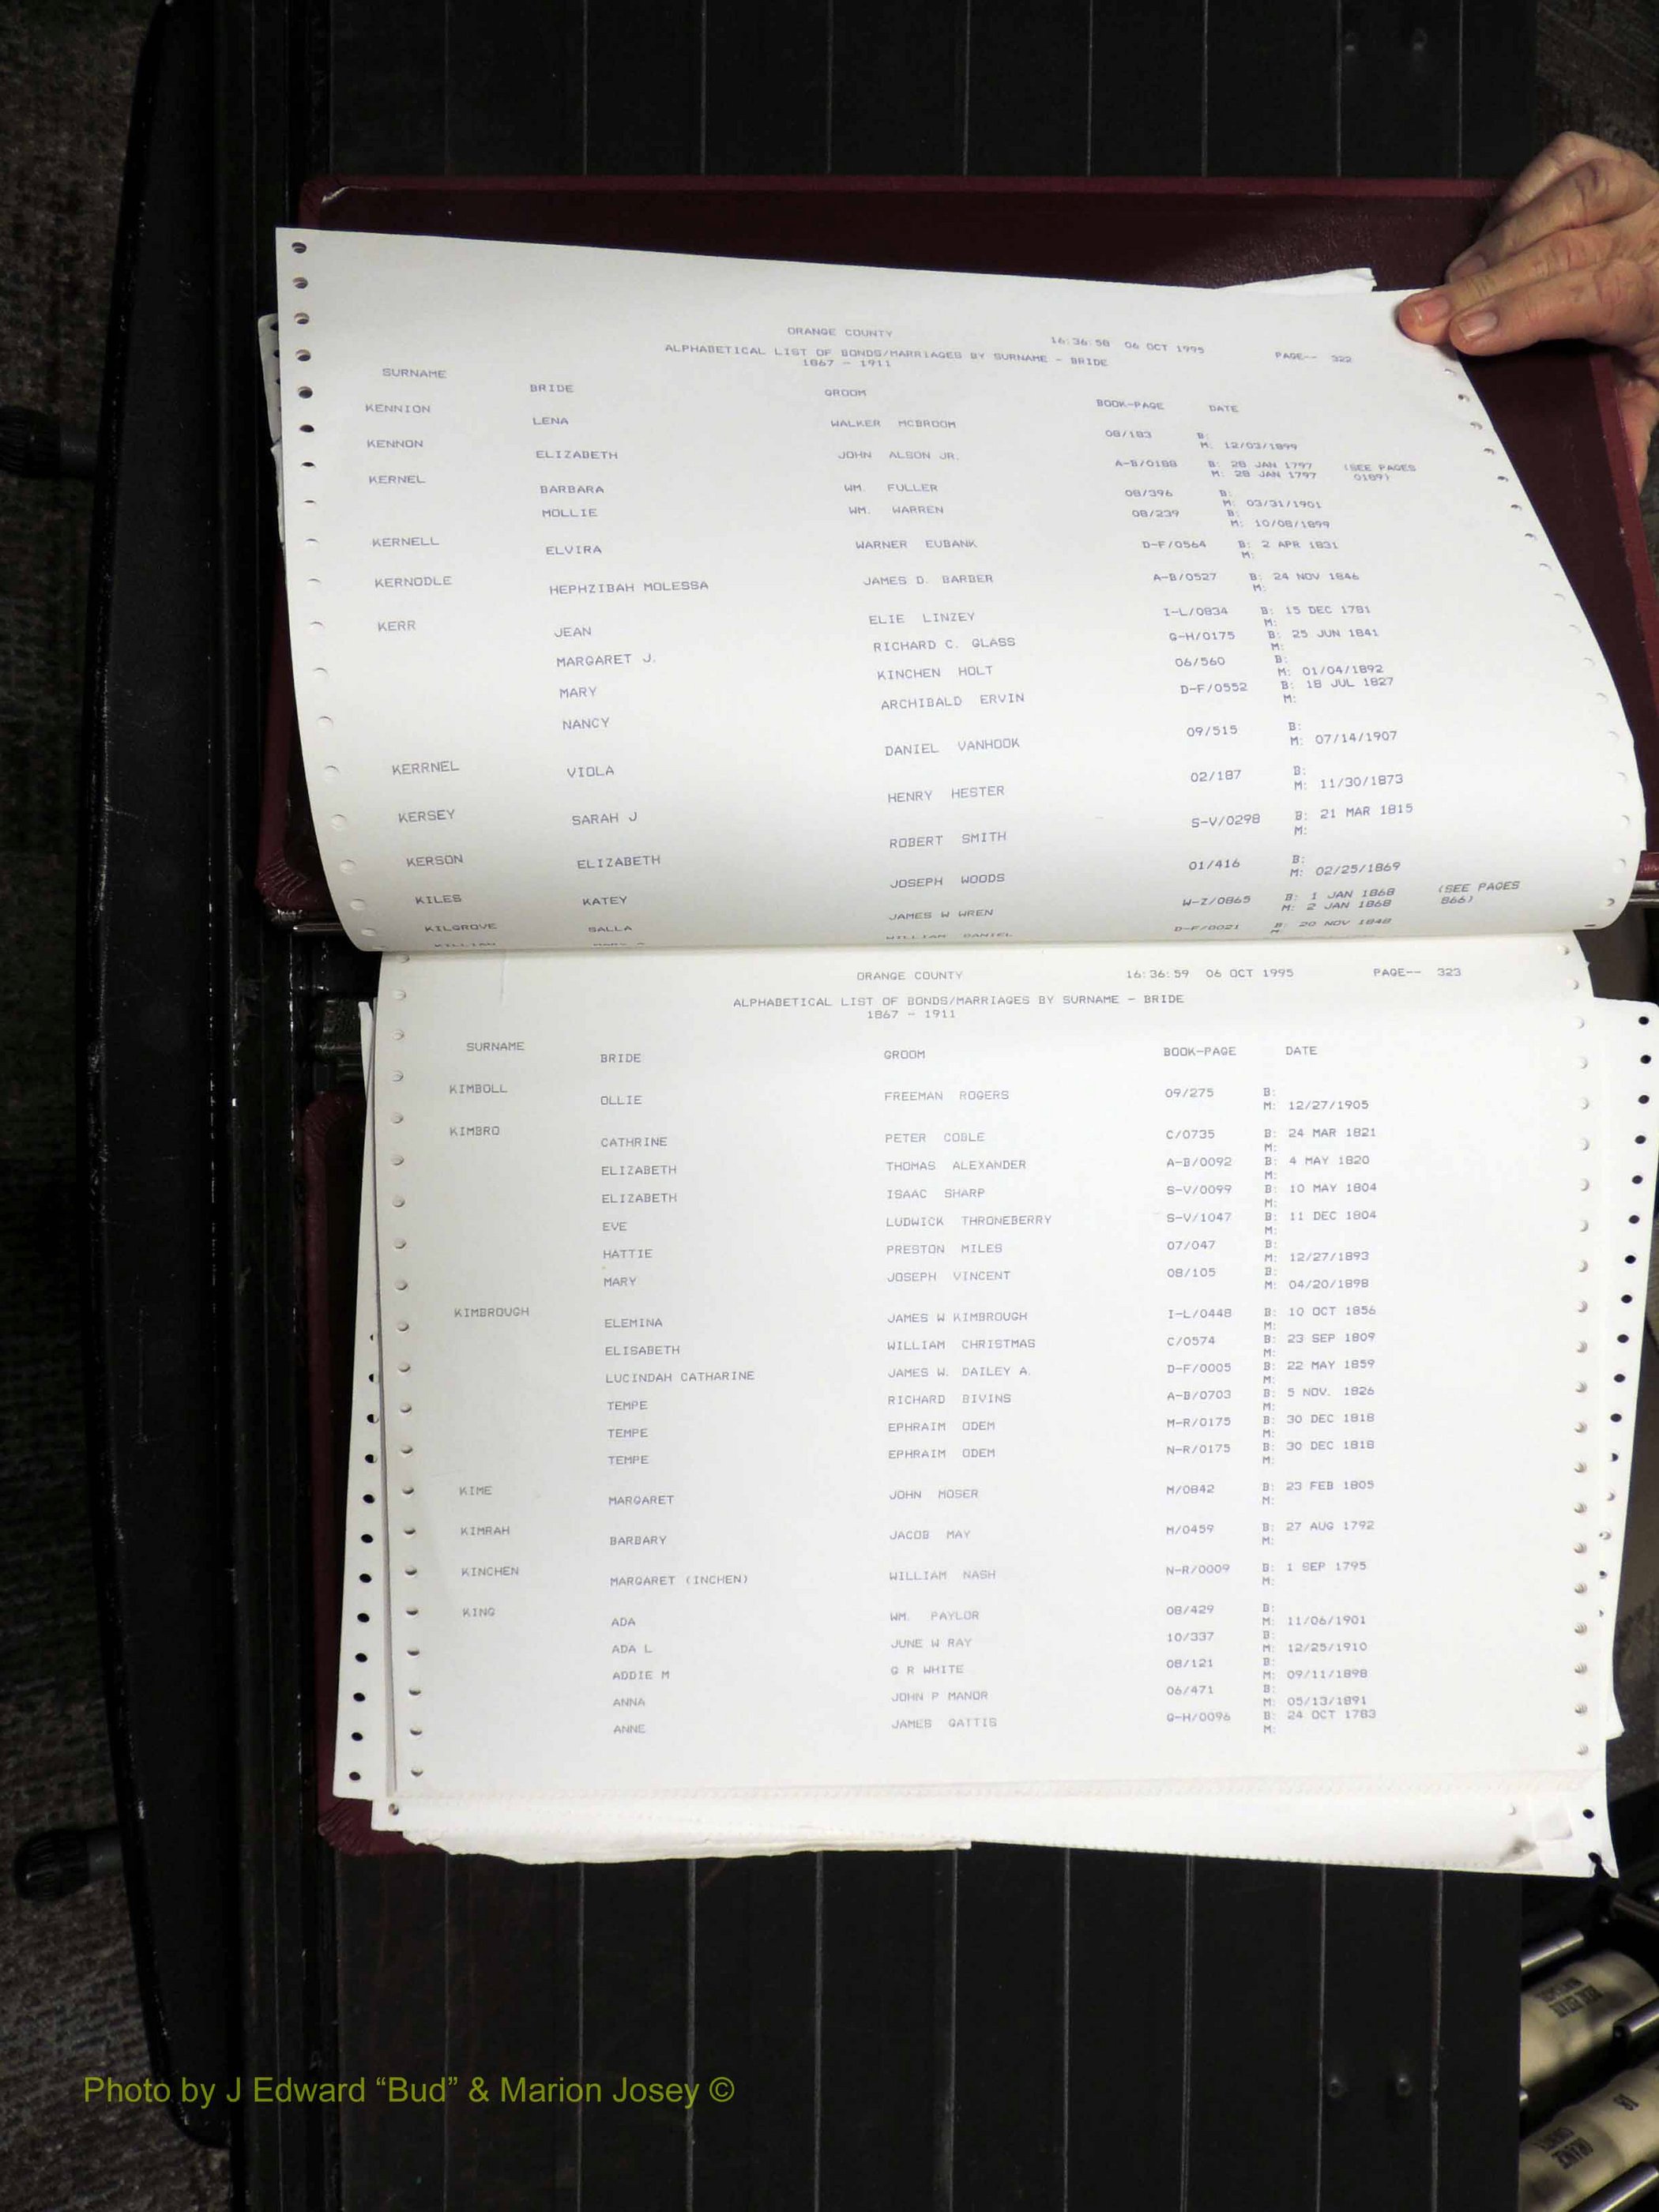 ORANGE COUNTY 16:36:58 06 OCT 1995 PAGE-- 322
ALPHABETICAL LIST OF BONDS/MARRIAGES BY SURNAME - BRIDE
1867 - 1911
SURNAME BRIDE GROOM BOOK-PAGE DATE
KENNION LENA WALKER MCBROOM 08/183 B:
M: 12/03/1899
KENNON ELIZABETH JOHN ALSON JR. A-B/0188 B: 28 JAN 1797 (SEE PAGES
M: 28 JAN 1797 0189)
KERNEL BARBARA WM. FULLER 08/396 B:
M: 03/31/1901
MOLLIE WM. WARREN 08/239 B:
M: 10/08/1899
KERNELL ELVIRA WARNER EUBANK D-F/0564 B: 2 APR 1831
M:
KERNODLE HEPHZIBAH MOLESSA JAMES D. BARBER A-B/0527 B: 24 NOV 1846
M:
KERR JEAN ELIE LINZEY I-L/0834 B: 15 DEC 1781
M:
MARGARET J. RICHARD C. GLASS G-H/0175 B: 25 JUN 1841
M:
MARY KINCHEN HOLT 06/560 B:
M: 01/04/1892
NANCY ARCHIBALD ERVIN D-F/0552 B: 18 JUL 1827
M:
KERRNEL VIOLA DANIEL VANHOOK 09/515 B:
M: 07/14/1907
KERSEY SARAH J HENRY HESTER 02/187 B:
M: 11/30/1873
KERSON ELIZABETH ROBERT SMITH S-V/0298 B: 21 MAR 1815
M:
KILES KATEY JOSEPH WOODS 01/416 B:
M: 02/25/1869
KILGROVE SALLA JAMES W WREN W-Z/0865 B: 1 JAN 1868 (SEE PAGES
M: 2 JAN 1868 866)
KILLIAN WILLIAM DANIEL D-F/0021 B: 20 NOV 1848
M:
ORANGE COUNTY 16:36:59 06 OCT 1995 PAGE-- 323
ALPHABETICAL LIST OF BONDS/MARRIAGES BY SURNAME - BRIDE
1867 - 1911
SURNAME BRIDE GROOM BOOK-PAGE DATE
KIMBOLL OLLIE FREEMAN ROGERS 09/275 B:
M: 12/27/1905
KIMBRO CATHRINE PETER COBLE C/0735 B: 24 MAR 1821
M:
ELIZABETH THOMAS ALEXANDER A-B/0092 B: 4 MAY 1820
M:
ELIZABETH ISAAC SHARP S-V/0099 B: 10 MAY 1804
M:
EVE LUDWICK THRONEBERRY S-V/1047 B: 11 DEC 1804
M:
HATTIE PRESTON MILES 07/047 B:
M: 12/27/1893
MARY JOSEPH VINCENT 08/105 B:
M: 04/20/1898
KIMBROUGH ELEMINA JAMES W KIMBROUGH I-L/0448 B: 10 OCT 1856
M:
ELISABETH WILLIAM CHRISTMAS C/0574 B: 23 SEP 1809
M:
LUCINDAH CATHARINE JAMES W. DAILEY A. D-F/0005 B: 22 MAY 1859
M:
TEMPE RICHARD BIVINS A-B/0703 B: 5 NOV. 1826
M:
TEMPE EPHRAIM ODEM M-R/0175 B: 30 DEC 1818
M:
TEMPE EPHRAIM ODEM N-R/0175 B: 30 DEC 1818
M:
KIME MARGARET JOHN MOSER M/0842 B: 23 FEB 1805
M:
KIMRAH BARBARY JACOB MAY M/0459 B: 27 AUG 1792
M:
KINCHEN MARGARET (INCHEN) WILLIAM NASH N-R/0009 B: 1 SEP 1795
M:
KING ADA WM. PAYLOR 08/429 B:
M: 11/06/1901
ADA L JUNE W RAY 10/337 B:
M: 12/25/1910
ADDIE M G R WHITE 08/121 B:
M: 09/11/1898
ANNA JOHN P MANOR 06/471 B:
M: 05/13/1891
ANNE JAMES GATTIS G-H/0096 B: 24 OCT 1783
M:
Photo by J Edward “Bud” & Marion Josey ©